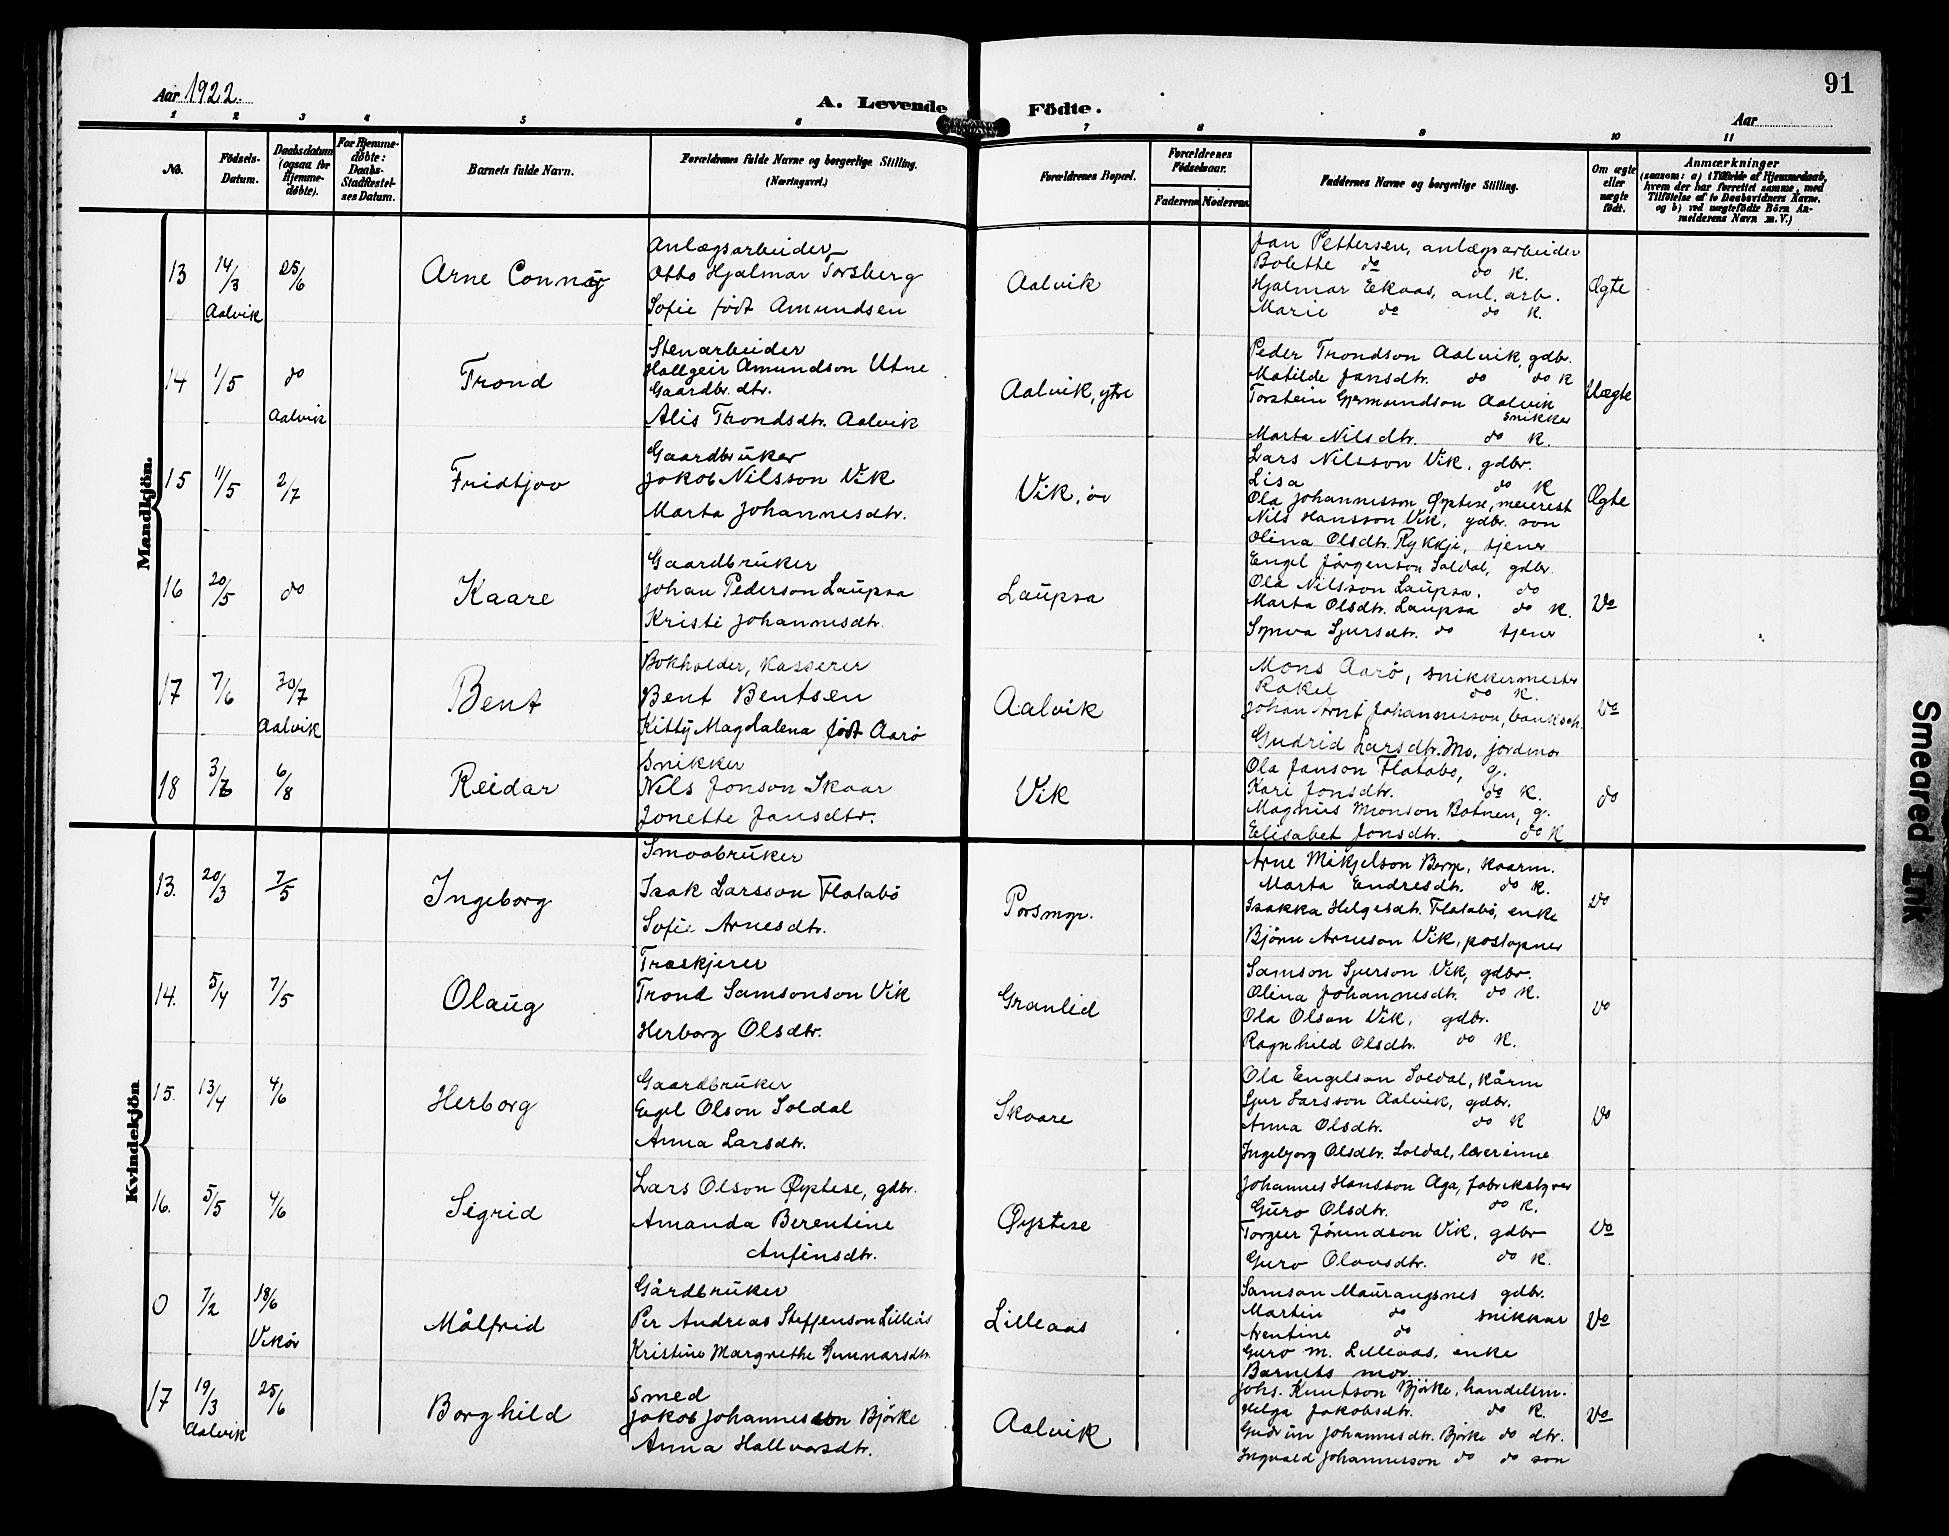 91
Aar 1922.
A. Levende Födte.
Aar
1 2 3 4 5 6 7 8 9 10 11
No.
Födsels-
Datum.
Daabsdatum
(ogsaa for
Hjemme-
døbte).
For Hjemme-
døbte:
Daabs-
Stadfæstel-
ses Datum.
Barnets fulde Navn.
Forældrenes fulde Navne og borgerlige Stilling.
(Næringsvei.)
Forældrenes Bopæl.
Forældrenes
Födselsaar.
Faderens Moderens
Faddernes Navne og borgerlige Stilling.
Om ægte
eller
uægte
født.
Anmærkninger
(saasom: a) i Tilfælde af Hjemmedaab,
hvem der har forrettet samme, med
Tilföielse af to Daabsvidners Navne.
og b) ved uægtefödte Börn An-
melderens Navn m. V.)
Mandkjön.
13
14/3
Aalvik
25/6
Arne
Anlægsarbeider
Otto Hjalmar Torsberg
Sofie født Amundsen
Aalvik
Jan Pettersen, anlægsarbeider
Bolette do do K.
Hjalmar Eekaas, anl. arb.
Marie do do K.
Ægte
14
1/5
do
Aalvik
Trond
Stenarbeider
Hallgeir Amundson Utne
Gaardbr. dtr.
Alis Trondsdtr. Aalvik
Aalvik, ytre
Peder Trondson Aalvik, gdbr.
Matilde Jansdtr. do do K
Torstein Germundson Aalvik
snikker
Marta Nilsdtr. do K.
Uægte
15
11/5
2/7
Fridtjov
Gaardbruker
Jakob Nilsson Vik
Marta Johannesdtr.
Vik, öv
Lars Nilsson Vik, gdbr.
Lisa do K
Ola Johannesson Øystese, meierest
Nils Hansson Vik, gdbr. son
Olina Olsdtr. Rykkje, tjener
Ægte
16
20/5
do
Kaare
Gaardbruker
Johan Pederson Laupsa
Kristi Johannesdtr.
Laupsa
Engel Jørgenson Soldal, gdbr.
Ola Nilsson Laupsa. do
Marta Olsdtr. Laupsa do K.
Synva Sjursdtr. do tjener
Do
17
7/6
30/7
Aalvik
Bent
Bokholder, kasserer
Bent Bentsen
Kitty Magdalena født Aarö
Aalvik
Mons Aarö, snikkermester
Rakel do K.
Johan Arnt Johannesson,
Gudrid Larsdtr. Mo, jordmor
Do
18
3/7
6/8
Reidar
Snikker
Nils Jonson Skaar
Jonette Jansdtr.
Vik
Ola Janson Flatabø, g.
Kari Jonsdtr. do K.
Magnus Monson Botnen, g.
Elisabet Jonsdtr. do K
do
Kvindekjön
13.
20/3
7/5
Ingeborg
Smaabruker
Isak Larsson Flatabö
Sofie Arnesdtr.
Porsmyr.
Arne Mikjelson Berge, kaarm.
Marta Endresdtr. do K.
Isakka Helgesdtr. Flatabö, enke
Björn Arneson Vik, postopner
Do
14.
5/4
7/5
Olaug
Træskjerer
Trond Samsonson Vik
Herborg Olsdtr.
Granlid
Samson Sjurson Vik, gdbr.
Olina Johannesdtr. do K.
Ola Olson Vik, gdbr.
Ragnhild Olsdtr. do K.
Do
15.
13/4
4/6
Herborg
Gaardbruker
Engel Olson Soldal
Anna Larsdtr.
Skaare
Ola Engelson Soldal, kårm
Sjur Larsson Aalvik, gdbr.
Anna Olsdtr. do K
Ingebjorg Olsdtr. Soldal, lærerinne
Do
16.
5/5
4/6
Sigrid
Lars Olson Øystese, gdbr.
Amanda Berentine
Anfinsdtr.
Øystese
Johannes Hansson Aga, fabrikstyrer
Guro Olsdtr. do K.
Torgeir Jörundson Vik, gdbr
Guro Olavsdtr. do K.
Do
0
7/2
18/6
Vikör
Målfrid
Gårdbruker
Per Andreas Steffenson Lilleås
Kristine Margrethe Gunnarsdtr.
Lilleaas
Samson Maurangsnes gdbr.
Martin do snikkar
Arentine do
Guro M. Lilleaas, enke
Barnets mor.
Do
17
19/3
Aalvik
25/6
Borghild
Smed
Jakob Johannesson Bjørke
Anna Hallvarsdtr.
Aalvik
Johs. Knutson Bjørke, handelsm.
Helga Jakobsdtr. do K.
Gudrun Johannesdtr. Bjørke do dtr.
Ingvald Johannesson do do son
Do
Smeared Ink